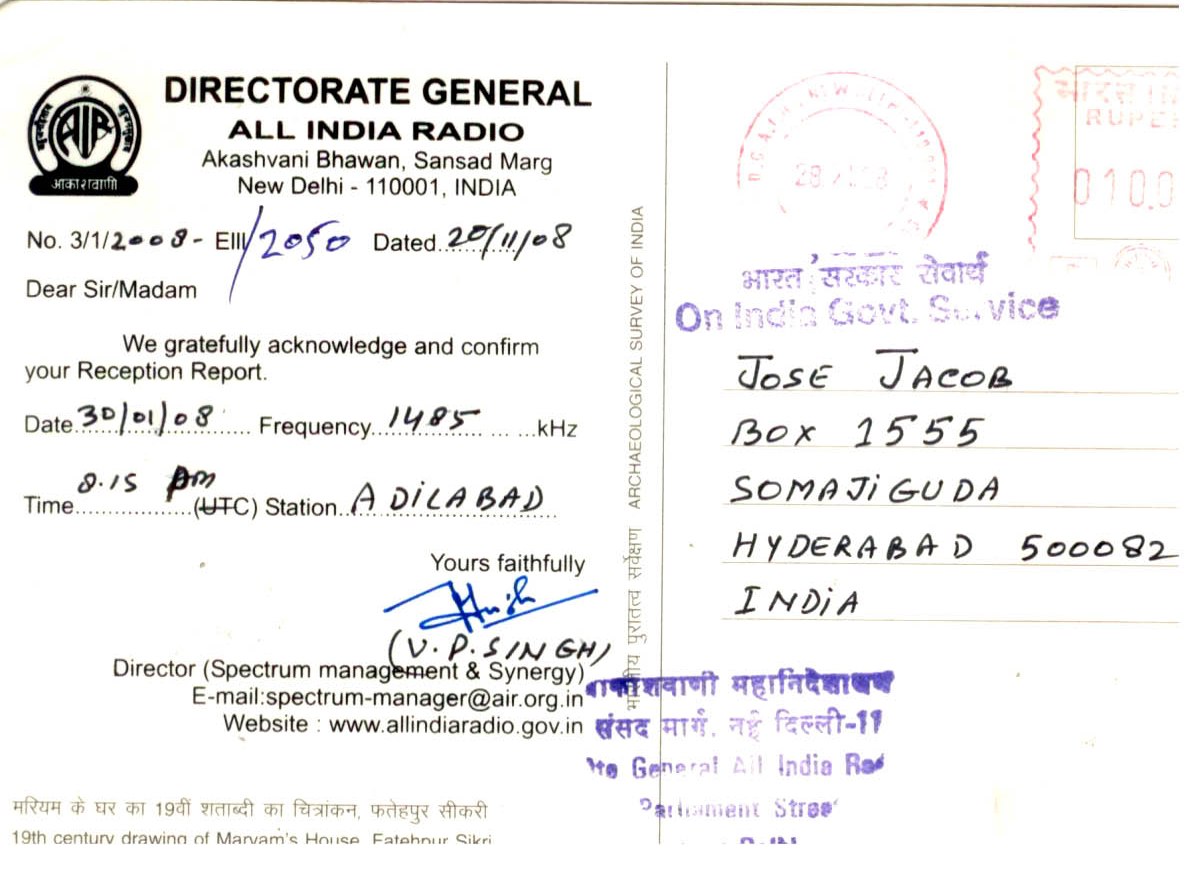 DIRECTORATE GENERAL
ALL INDIA RADIO
Akashvani Bhawan, Sansad Marg
New Delhi - 110001, INDIA
AIR
आकाशवाणी
No. 3/1/2008- EIII/2050 Dated 20/11/08
Dear Sir/Madam
We gratefully acknowledge and confirm
your Reception Report.
Date 30/01/08 Frequency 1485 kHz
Time 8.15 pm (UTC) Station ADILABAD
Yours faithfully
(V.P.SINGH)
Director (Spectrum management & Synergy)
E-mail:spectrum-manager@air.org.in
Website : www.allindiaradio.gov.in
मरियम के घर का 19वीं शताब्दी का चित्रांकन, फतेहपुर सीकरी
19th century drawing of Maryam's House, Fatehpur Sikri
भारतीय पुरातत्व सर्वेक्षण ARCHAEOLOGICAL SURVEY OF INDIA
NEW DELHI
28
भारत
RUPE
010.0
भारत सरकार सेवार्थ
On India Govt. Service
JOSE JACOB
BOX 1555
SOMAJIGUDA
HYDERABAD 500082
INDIA
महानिदेशालय
संसद मार्ग, नई दिल्ली-11
General All India
Parliament Street